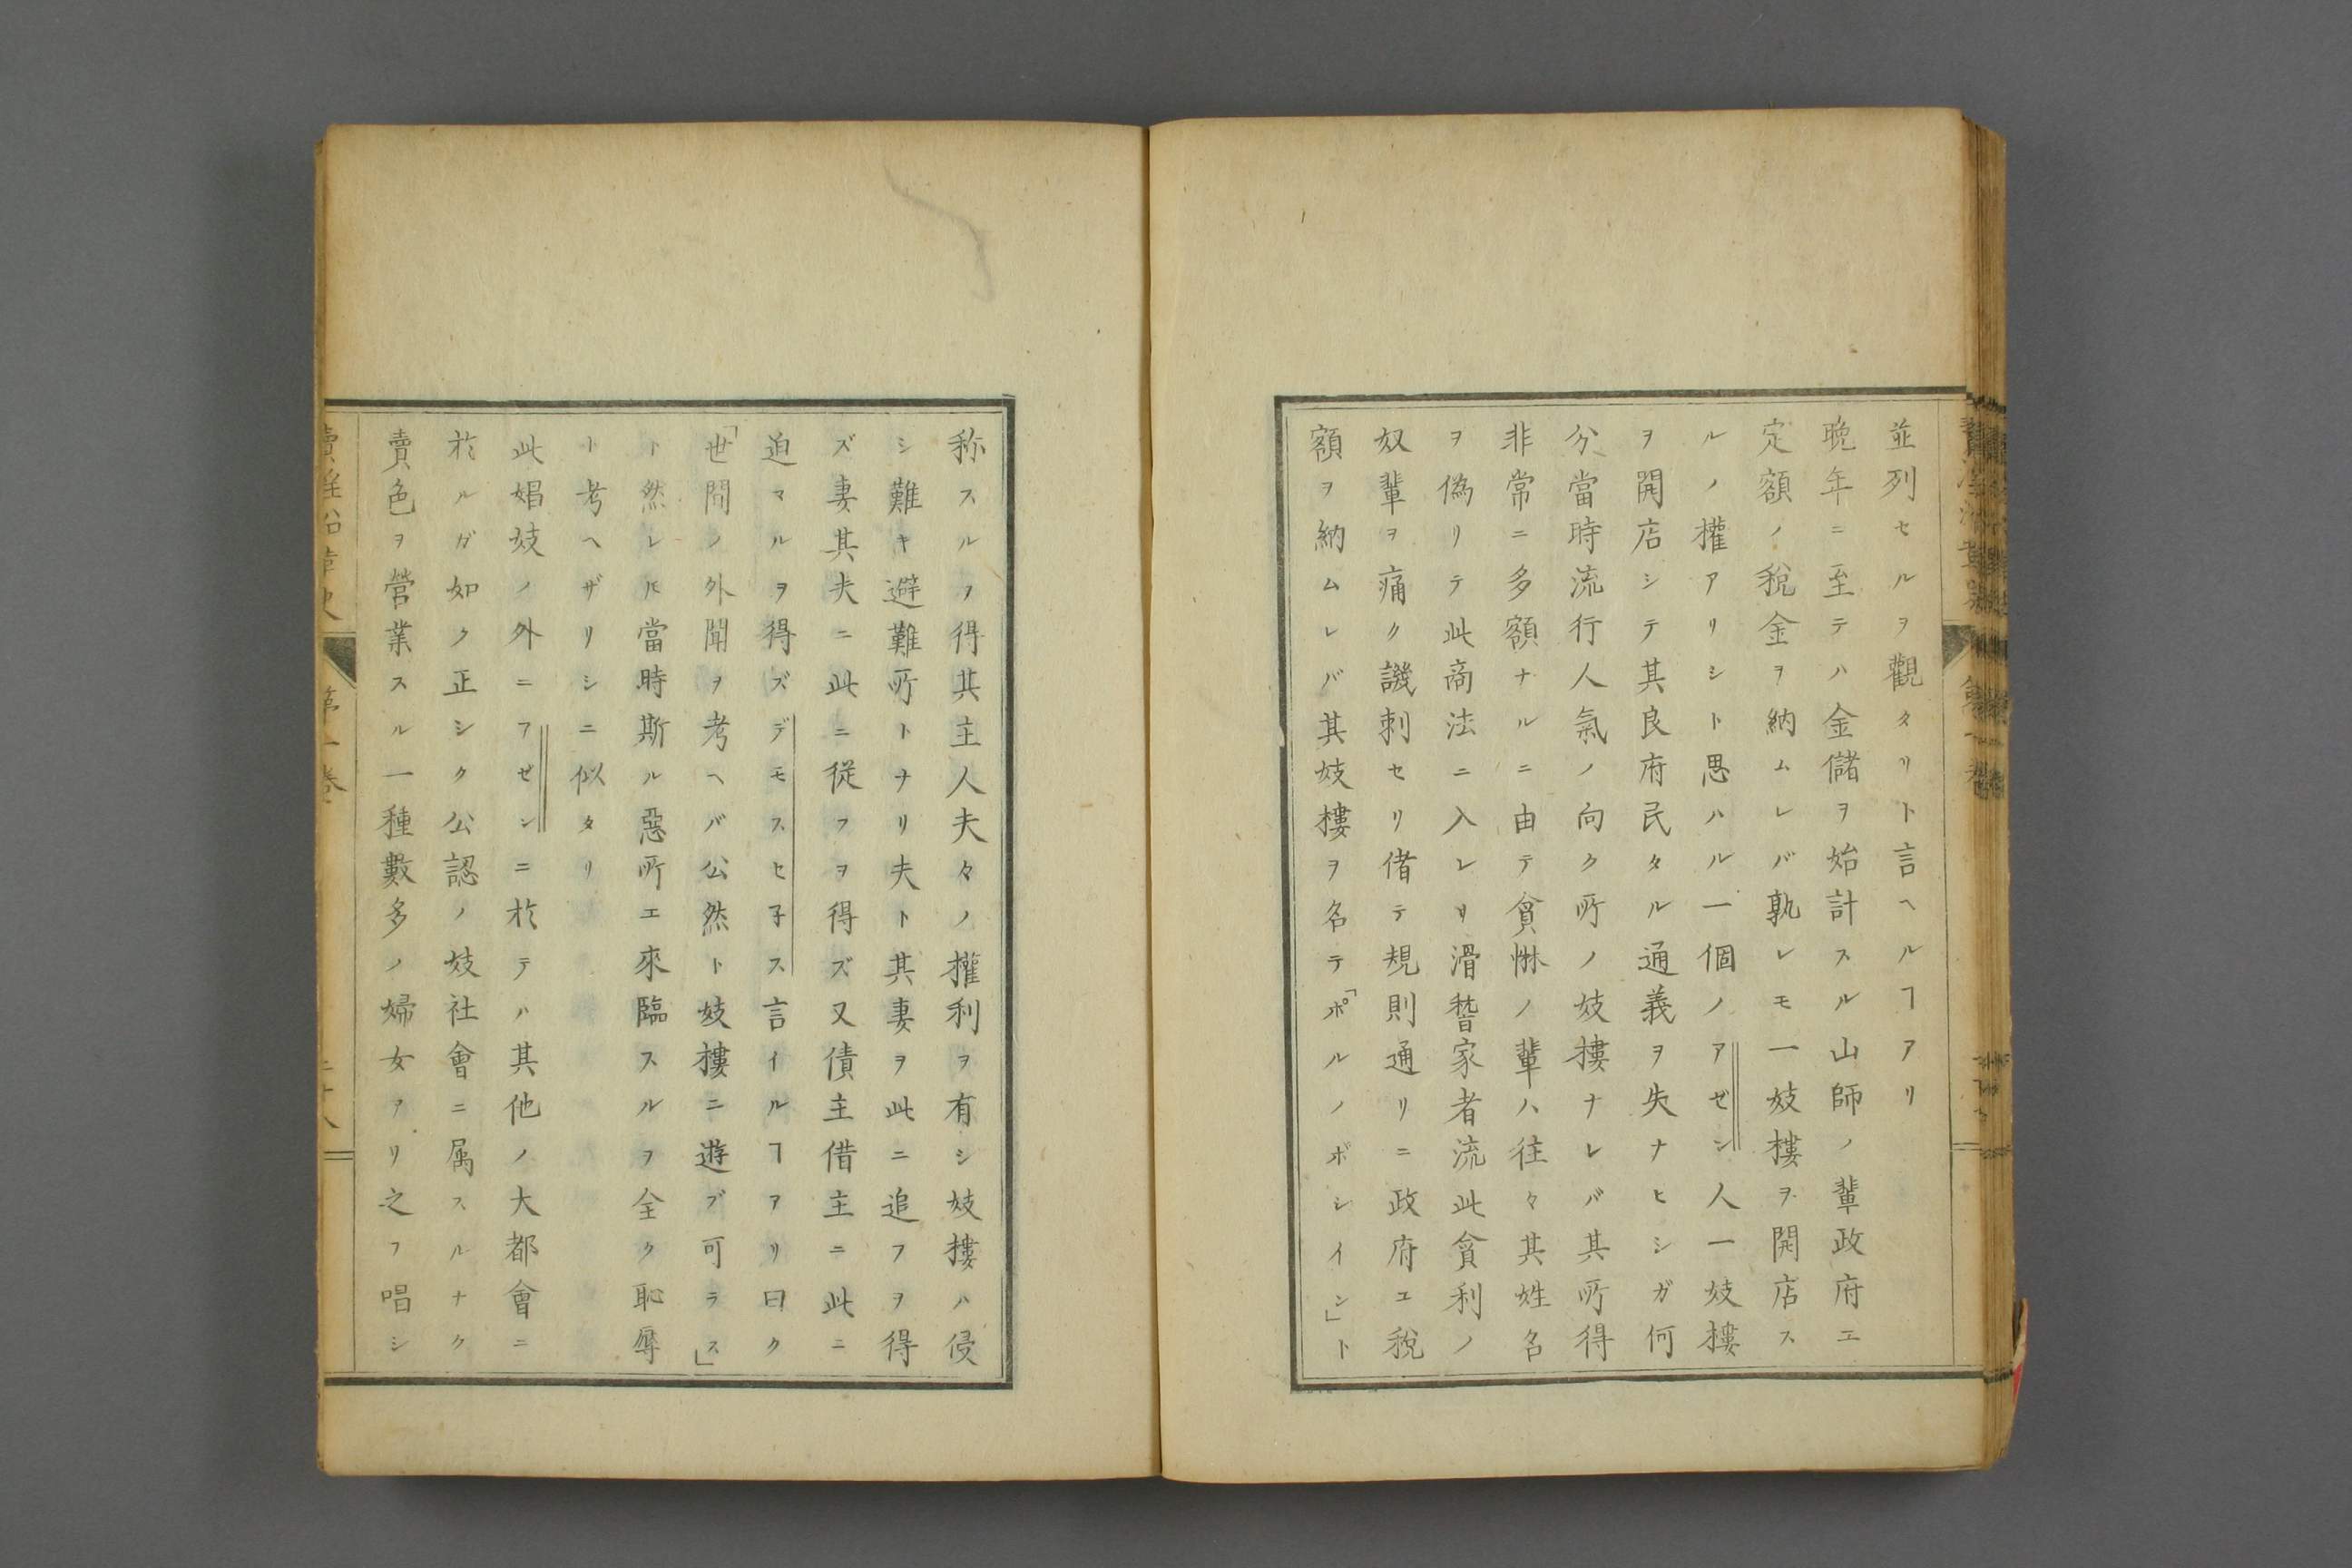 並列セルヲ觀タリト言ヘルヿアリ
晩年ニ至テハ金儲ヲ始計スル山師ノ輩政府エ
定額ノ税金ヲ納ムレバ孰レモ一妓樓ヲ開店ス
ルノ權アリシト思ハル一個ノアゼン人一妓樓
ヲ開店シテ其良府民タル通義ヲ失ナヒシガ何
分當時流行人氣ノ向ク所ノ妓樓ナレバ其所得
非常ニ多額ナルニ由テ貪惏ノ輩ハ往々其姓名
ヲ偽リテ此商法ニ入レリ滑稽家者流此貪利ノ
奴輩ヲ痛ク譏刺セリ偖テ規則通リニ政府エ税
額ヲ納ムレバ其妓樓ヲ名テ「ポルノボシイン」ト
称スルヲ得其主人夫々ノ權利ヲ有シ妓樓ハ侵
シ難キ避難所トナリ夫ト其妻ヲ此ニ追フヲ得
ズ妻其夫ニ此ニ従フヲ得ズ又債主借主ニ此ニ
迫マルヲ得ズデモスセ子ス言イルヿアリ曰ク
「世間ノ外聞ヲ考ヘバ公然ト妓樓ニ遊ブ可ラス」
ト然レ𪜈當時斯ル惡所エ來臨スルヲ全ク恥辱
ト考ヘザリシニ似タリ
此娼妓ノ外ニアゼンニ於テハ其他ノ大都會ニ
於ルガ如ク正シク公認ノ妓社會ニ属スルナク
賣色ヲ營業スル一種數多ノ婦女アリ之ヲ唱シ
第一巻